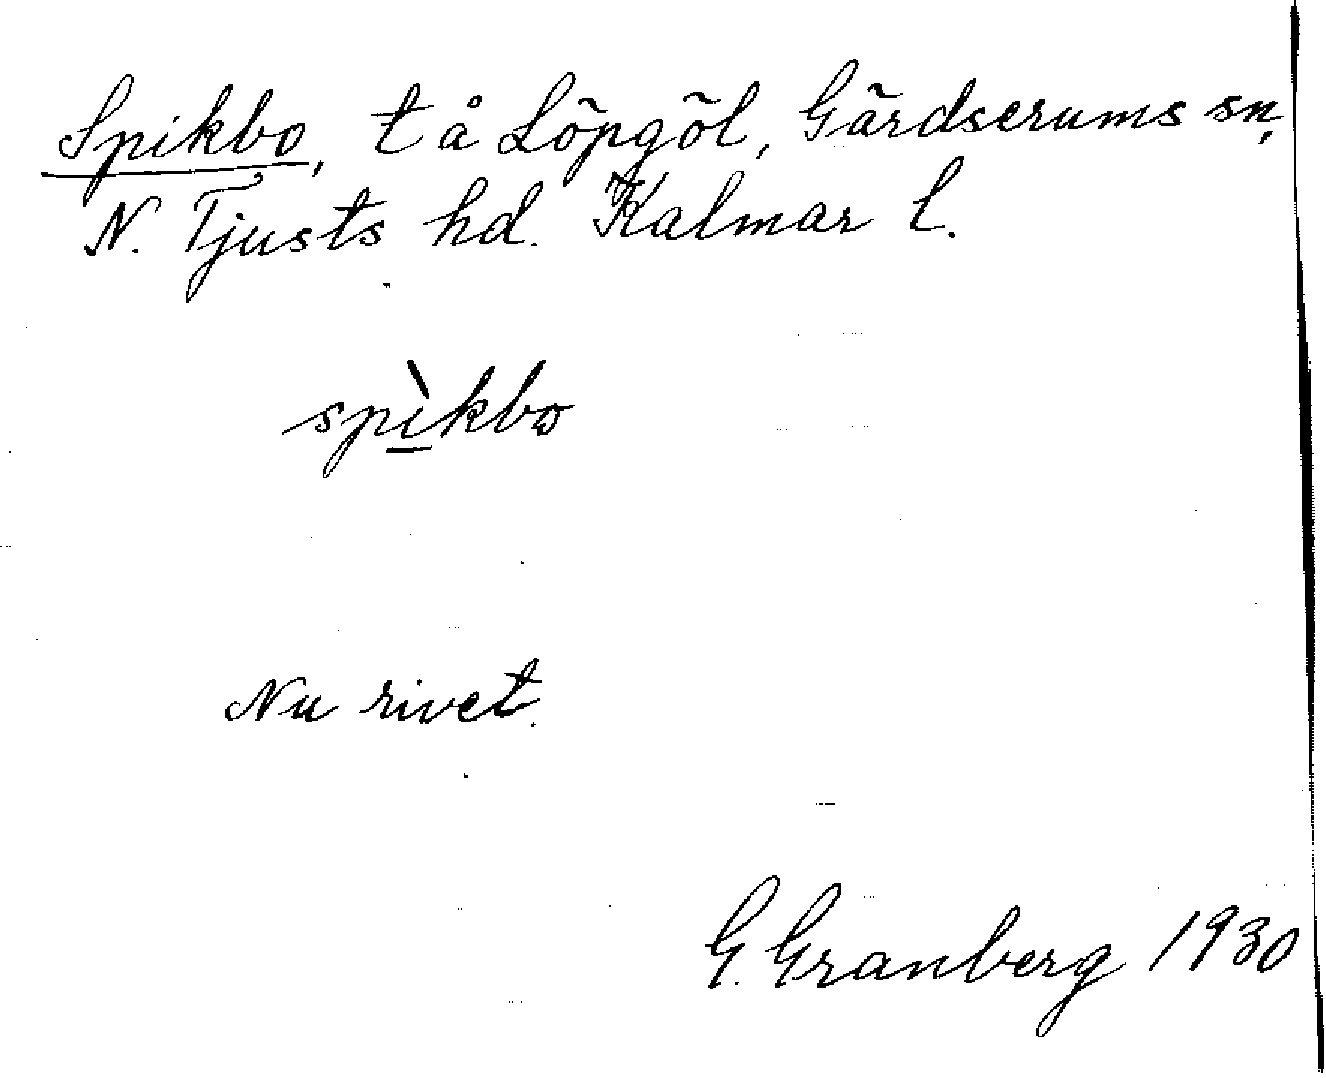 Spikbo, t å Löpgöl, Gärdserums sn,
N. Tjusts hd. Kalmar l.
spìkbo
Nu rivet.
G. Granberg 1930